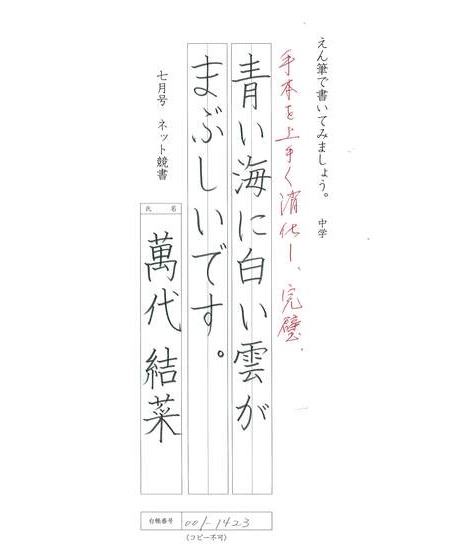 えん筆で書いてみましょう。 中学
手本を上手く消化し、完璧.
青い海に白い雲が
まぶしいです。
七月号 ネット競書
氏名
萬代結菜
台帳番号 001-1423
(コピー不可)